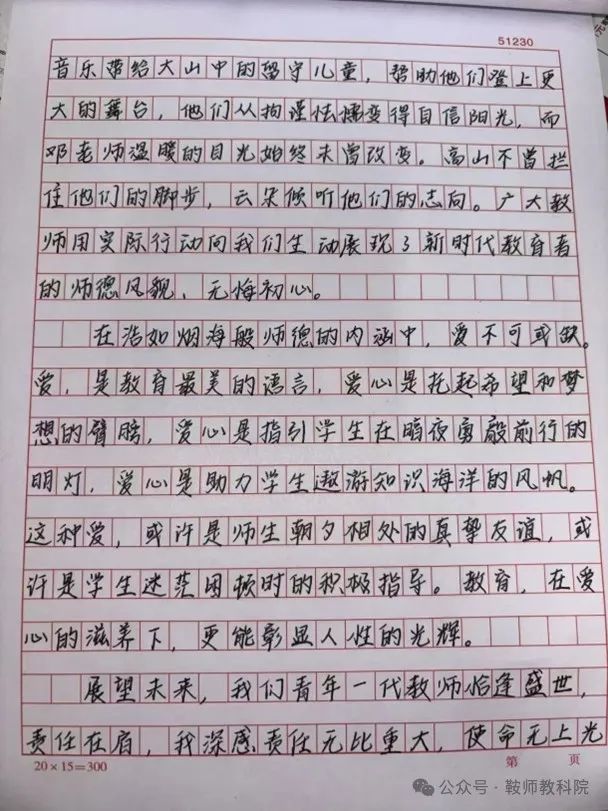 51230
音乐带给大山中的留守儿童，帮助他们登上更
大的舞台，他们从拘谨怯懦变得自信阳光，而
邓老师温暖的目光始终未曾改变。高山不曾拦
住他们的脚步，云朵倾听他们的志向。广大教
师用实际行动向我们生动展现了新时代教育者
的师德风貌、无悔初心。
在浩如烟海般师德的内涵中，爱不可或缺。
爱，是教育最美的语言，爱心是托起希望和梦
想的臂膀，爱心是指引学生在暗夜勇毅前行的
明灯，爱心是助力学生遨游知识海洋的风帆。
这种爱，或许是师生朝夕相处的真挚友谊，或
许是学生迷茫困顿时的积极指导。教育，在爱
心的滋养下，更能彰显人性的光辉。
展望未来，我们青年一代教师恰逢盛世，
责任在肩，我深感责任无比重大，使命无上光
20×15=300 第 页
公众号·鞍师教科院